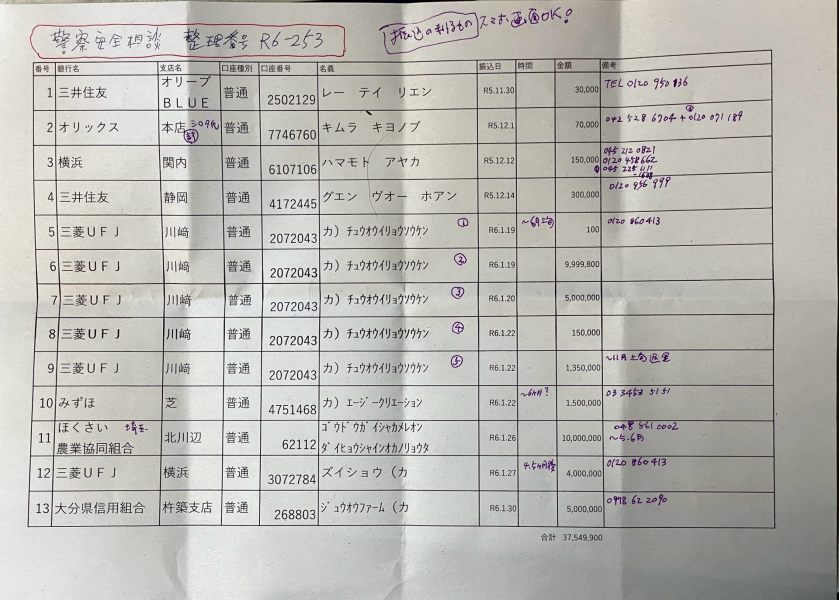 警察安全相談 整理番号 R6-253
振込の判るもの スマホ画面OK!
番号 銀行名 支店名 口座種別 口座番号 名義 振込日 時間 金額 備考
1 三井住友 オリーブBLUE 普通 2502129 レー テイ リエン R5.11.30 30,000 TEL 0120 950 136
2 オリックス 本店 普通 7746760 キムラ キヨノブ R5.12.1 70,000 042 528 6704 + 0120 071 189
3 横浜 関内 普通 6107106 ハマモト アヤカ R5.12.12 150,000 045 212 0821
0120 458 662
045 225 1111
4 三井住友 静岡 普通 4172445 グエン ヴオー ホアン R5.12.14 300,000 0120 956 999
5 三菱UFJ 川﨑 普通 2072043 カ）チュウオウイリョウソウケン ① R6.1.19 ～6月上旬 100 0120 860 413
6 三菱UFJ 川﨑 普通 2072043 カ）チュウオウイリョウソウケン ② R6.1.19 9,999,800
7 三菱UFJ 川﨑 普通 2072043 カ）チュウオウイリョウソウケン ③ R6.1.20 5,000,000
8 三菱UFJ 川﨑 普通 2072043 カ）チュウオウイリョウソウケン ④ R6.1.22 150,000
9 三菱UFJ 川﨑 普通 2072043 カ）チュウオウイリョウソウケン ⑤ R6.1.22 1,350,000 ～11月上旬
10 みずほ 芝 普通 4751468 カ）エージークリエーション R6.1.22 1,500,000 03 3453 5151
11 ほくさい農業協同組合 埼玉 北川辺 普通 62112 ゴウドウガイシャカメレオン ダイヒョウシャインオカノリョウタ R6.1.26 10,000,000 048 561 0002
～5-6月
12 三菱UFJ 横浜 普通 3072784 ズイショウ（カ R6.1.27 4,000,000 0120 860 413
13 大分県信用組合 杵築支店 普通 268803 ジュウオウファーム（カ R6.1.30 5,000,000 0978 62 2090
合計 37,549,900